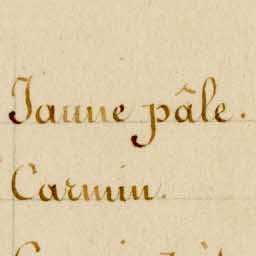 Jaune pâle.
Carmin.